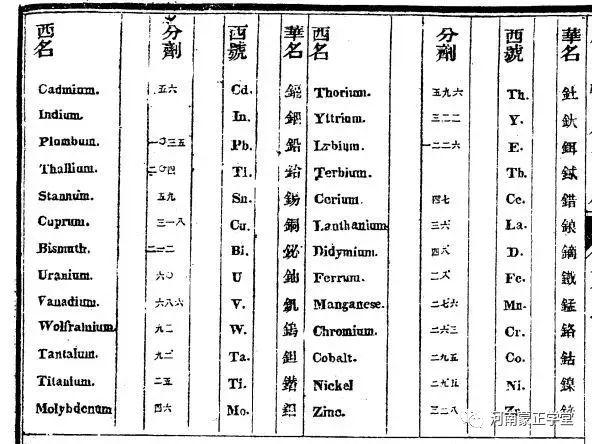 西名 分劑 西號 華名 西名 分劑 西號 華名
Cadmium. 五六 Cd. 鎘 Thorium. 五九六 Th. 釷
Indium. In. 銦 Yttrium. 三二二 Y. 釱
Plumbum. 一〇三五 Pb. 鉛 Erbium. E. 鉺
Thallium. 二〇四 Tl. Terbium. Tb. 鋱
Stannum. 五九 Sn. 錫 Cerium. 四七 Ce. 錯
Cuprum. 三一八 Cu. 銅 Lanthanium 三六 La. 鋃
Bismuth. Bi. 鉍 Didymium. 四八 D. 鏑
Uranium. 六〇 U 鈾 Ferrum. 二八 Fe. 鐵
Vanadium. 六八六 V. 釩 Manganese. 二七六 Mn. 錳
Wolframium 九二 W. 鎢 Chromium. 二六三 Cr. 鉻
Tantalum. 九二 Ta. 鉭 Cobalt. 二九五 Co. 鈷
Titanium. 二五 Ti. 鐟 Nickel 二九五 Ni. 鎳
Molybdenum 四六 Mo. Zinc. 三二八
河南蒙正学堂